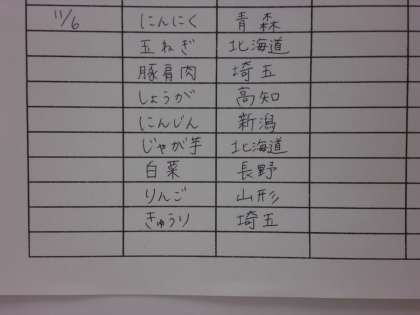 11/6 にんにく 青森
玉ねぎ 北海道
豚肩肉 埼玉
しょうが 高知
にんじん 新潟
じゃが芋 北海道
白菜 長野
りんご 山形
きゅうり 埼玉